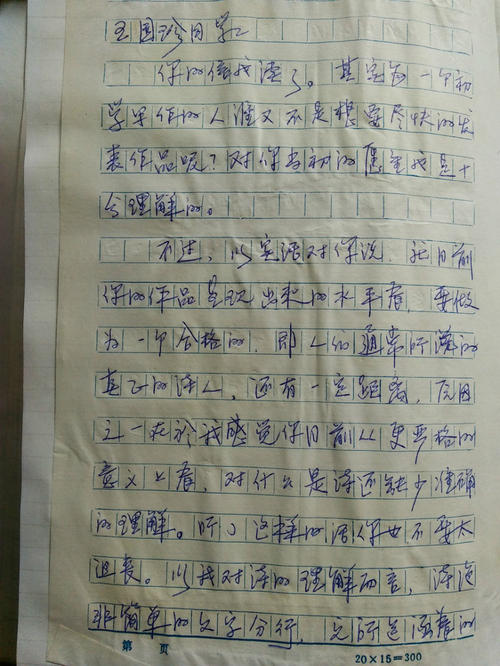 王国珍同学：
你的信我读了。其实每一个初
学毕作的人谁又不是很要尽快的发
表作品呢？对你当初的愿望我是十
分理解的。
不过，以实话对你说，就目前
你的作品呈现出来的水平看，要做
为一个合格的，即人们通常所谓的
真正的诗人，还有一定距离，原因
之一在於我感觉你目前从更严格的
意义上看，对什么是诗还缺少准确
的理解。听了这样的话你也不要太
沮丧。以我对诗的理解而言，诗绝
非简单的文字分行，它所包涵着的
第 页
20×15=300